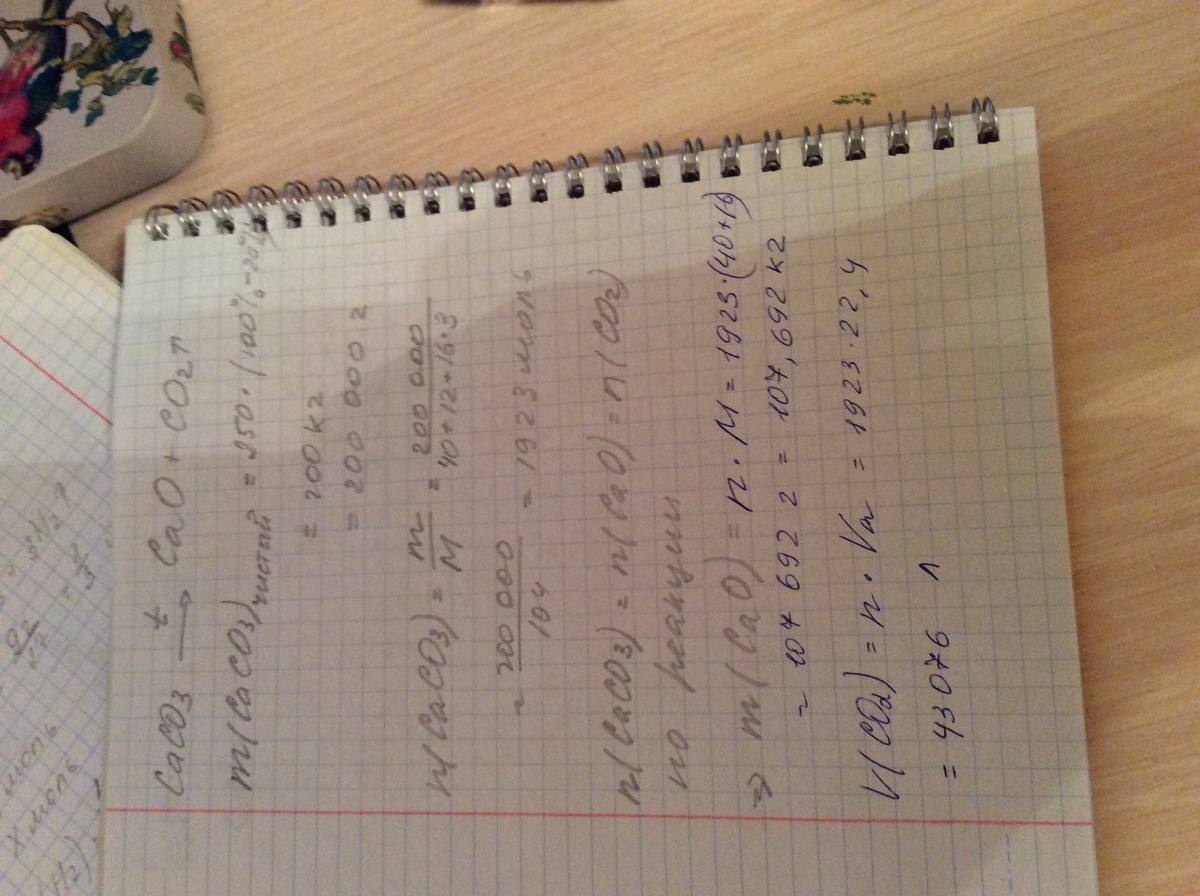 CaCO3 t→ CaO + CO2↑
m(CaCO3)чистый = 250 · (100% - 20%)
= 200 кг
= 200 000 г
n(CaCO3) = m/M = 200 000/40+12+16·3
= 200 000/104 = 1923 моль
n(CaCO3) = n(CaO) = n(CO2)
по реакции
=> m(CaO) = n · M = 1923 · (40+16)
= 107 692 г = 107,692 кг
V(CO2) = n · Vm = 1923 · 22,4
= 43 076 л
моль
X моль